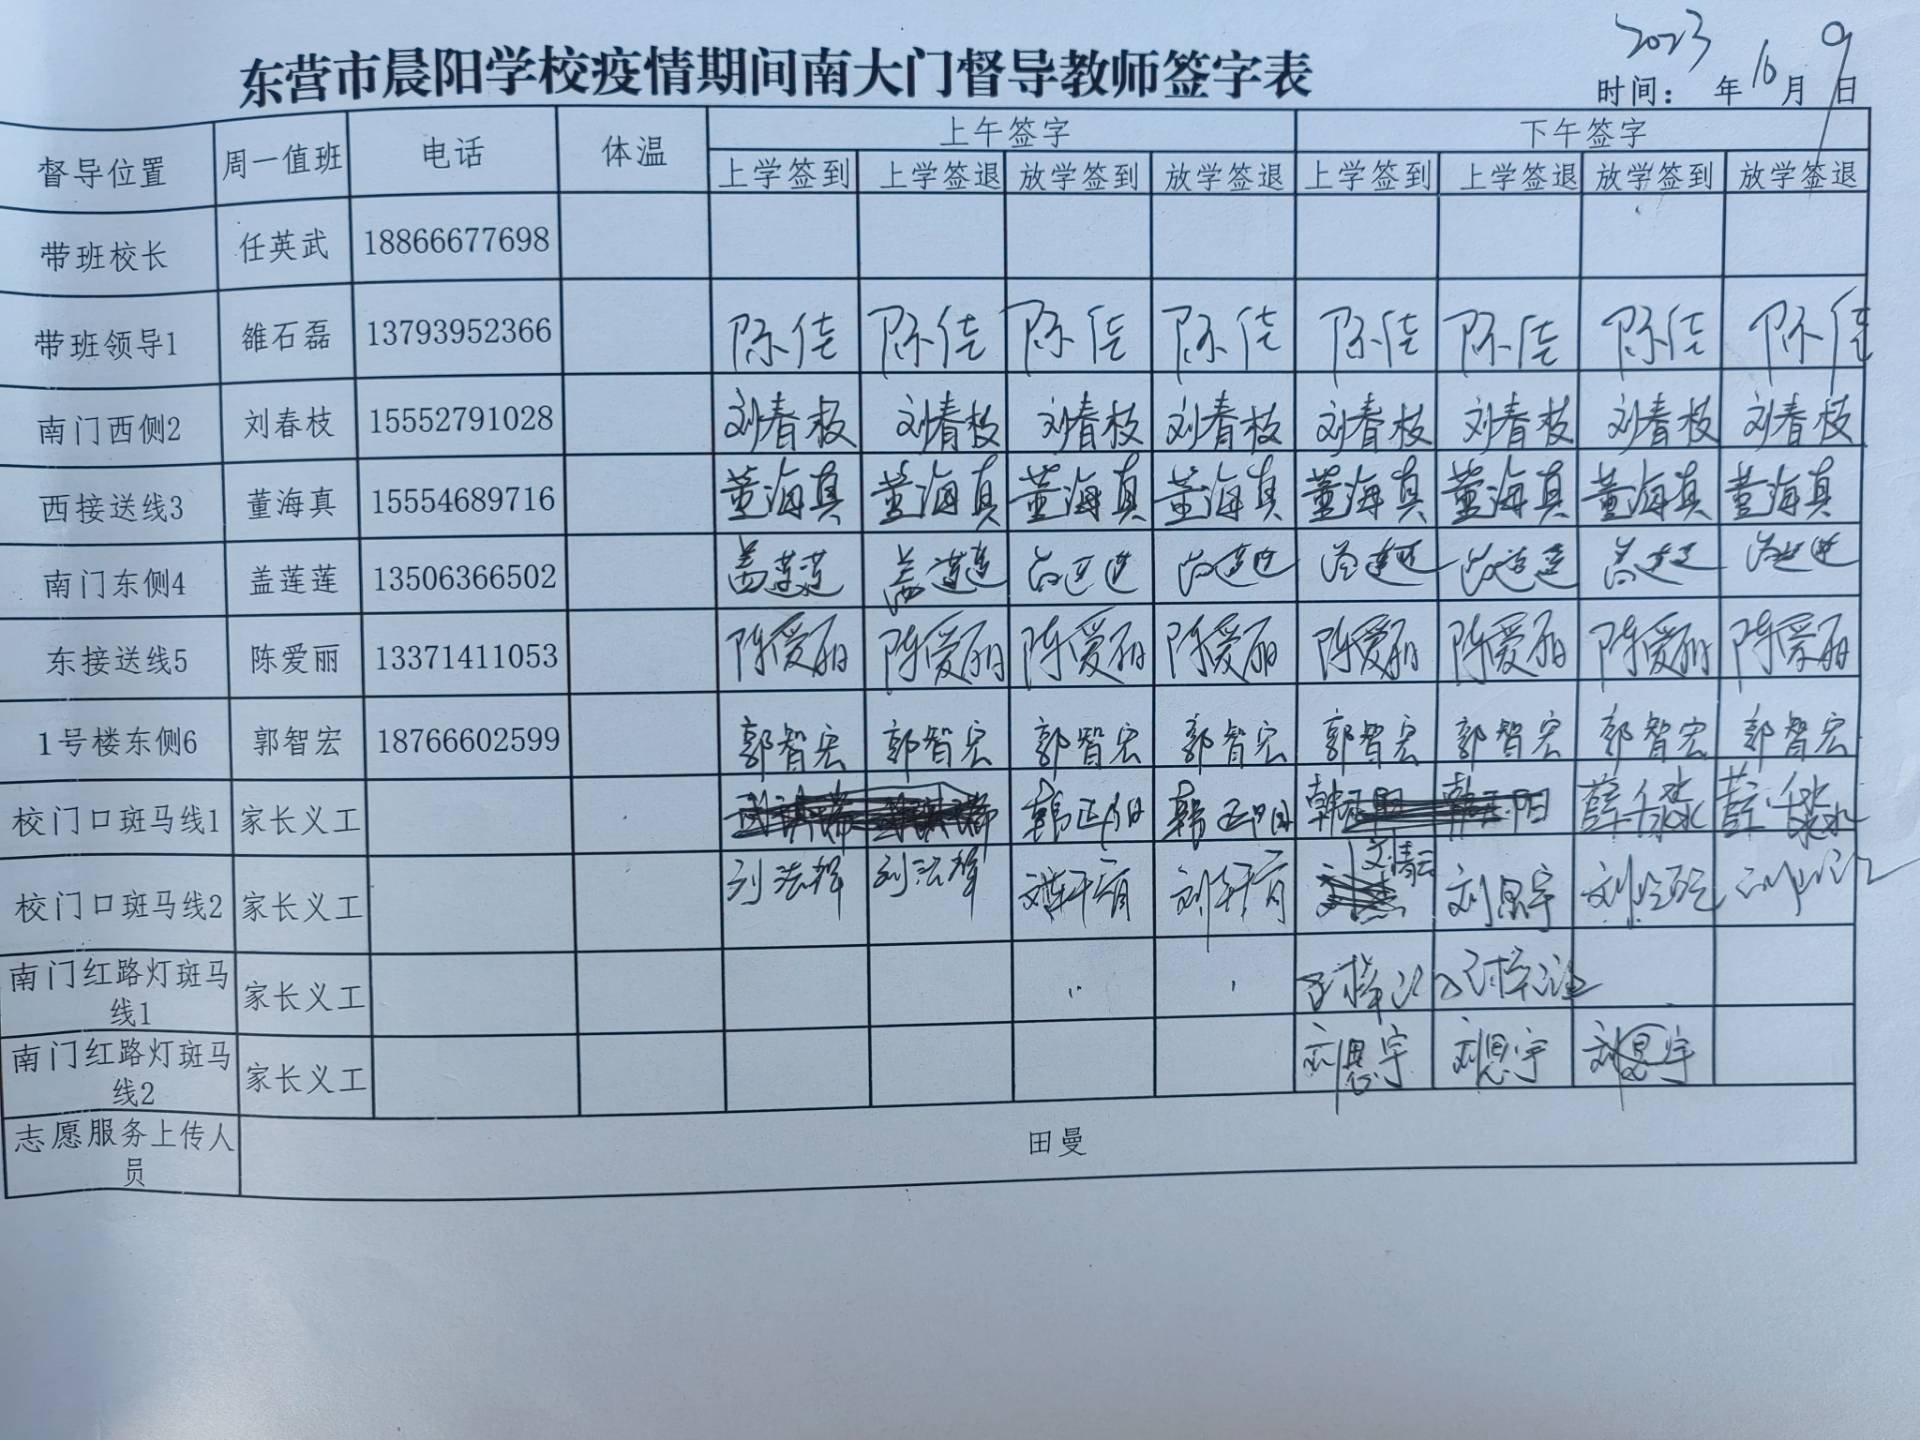 东营市晨阳学校疫情期间南大门督导教师签字表
时间： 2023 年 10 月 9 日
督导位置 周一值班 电话 体温 上午签字 下午签字
上学签到 上学签退 放学签到 放学签退 上学签到 上学签退 放学签到 放学签退
带班校长 任英武 18866677698
带班领导1 雒石磊 13793952366 陈佳 陈佳 陈佳 陈佳 陈佳 陈佳 陈佳 陈佳
南门西侧2 刘春枝 15552791028 刘春枝 刘春枝 刘春枝 刘春枝 刘春枝 刘春枝 刘春枝 刘春枝
西接送线3 董海真 15554689716 董海真 董海真 董海真 董海真 董海真 董海真 董海真 董海真
南门东侧4 盖莲莲 13506366502 盖莲莲 盖莲莲 盖莲莲 盖莲莲 盖莲莲 盖莲莲 盖莲莲 盖莲莲
东接送线5 陈爱丽 13371411053 陈爱丽 陈爱丽 陈爱丽 陈爱丽 陈爱丽 陈爱丽 陈爱丽 陈爱丽
1号楼东侧6 郭智宏 18766602599 郭智宏 郭智宏 郭智宏 郭智宏 郭智宏 郭智宏 郭智宏 郭智宏
校门口斑马线1 家长义工 韩正阳 韩正阳
校门口斑马线2 家长义工 刘思宇
南门红路灯斑马
线1
家长义工
南门红路灯斑马
线2
家长义工 刘思宇 刘思宇 刘思宇
志愿服务上传人
员
田曼